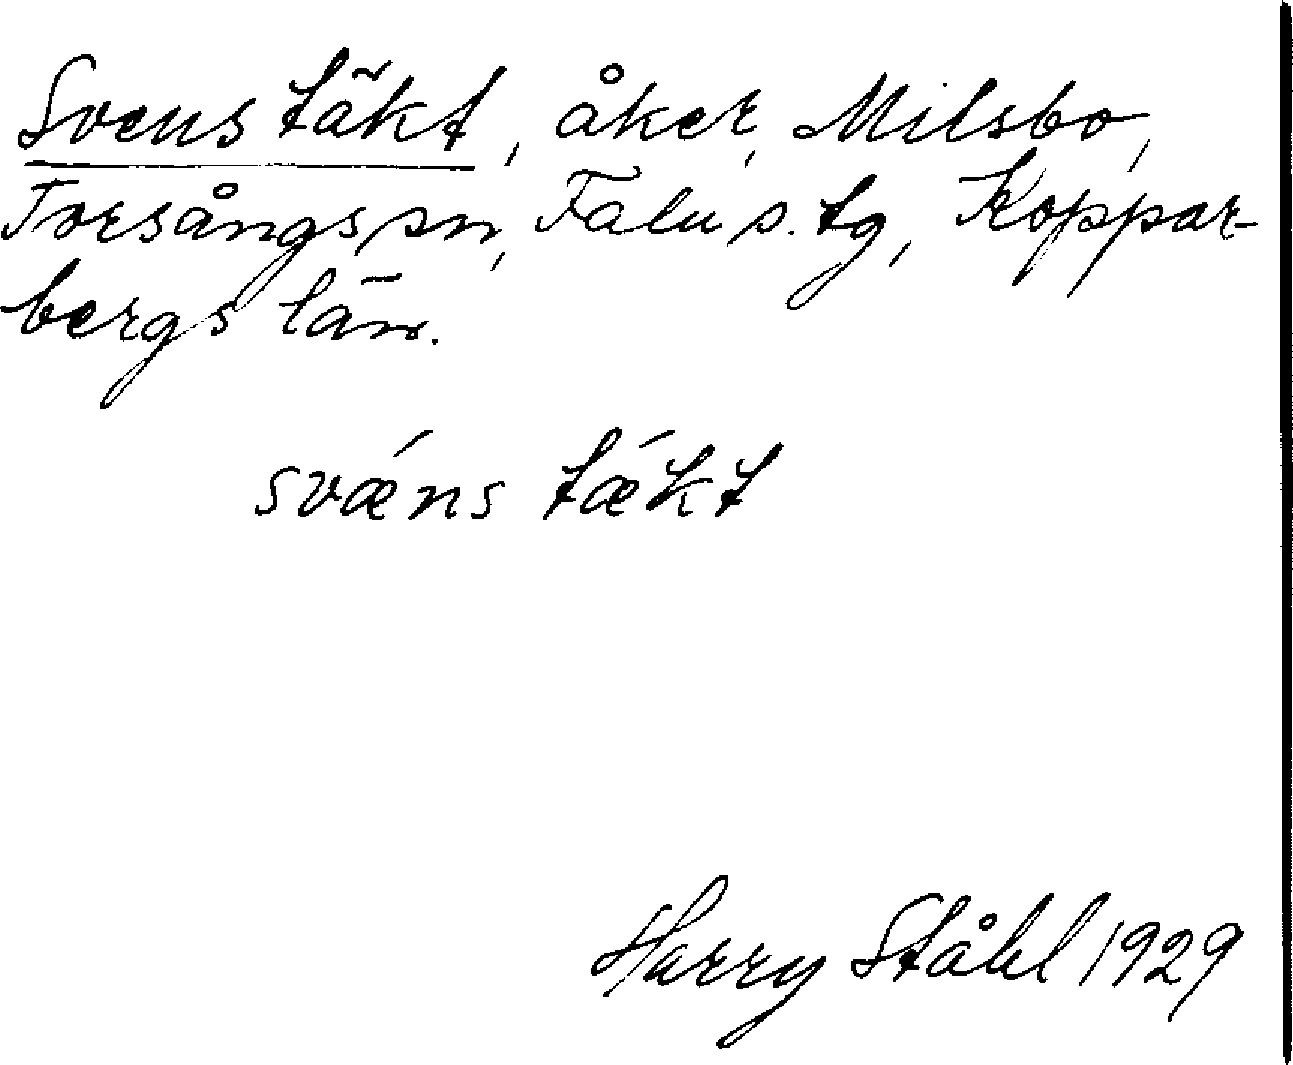 Svens täkt, åker, Milsbo,
Torsångs sn, Falu s. tg, Koppar-
bergs län.
svǽns tǽkt
Harry Ståhl 1929